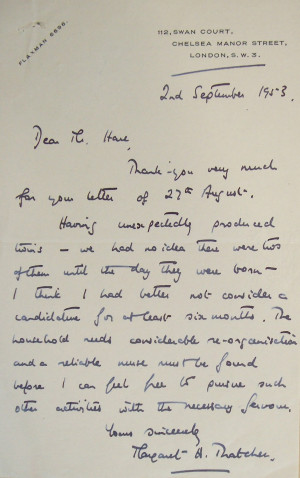 FLAXMAN 8696.
112, SWAN COURT,
CHELSEA MANOR STREET,
LONDON, S.W. 3.
2nd September 1953
Dear Mr. Hare,
Thank-you very much
for your letter of 27th August.
Having unexpectedly produced
twins – we had no idea there were two
of them until the day they were born –
I think I had better not consider a
candidature for at least six months. The
household needs considerable re-organisation
and a reliable nurse must be found
before I can feel free to pursue such
other activities with the necessary fervour.
Yours sincerely
Margaret H. Thatcher.